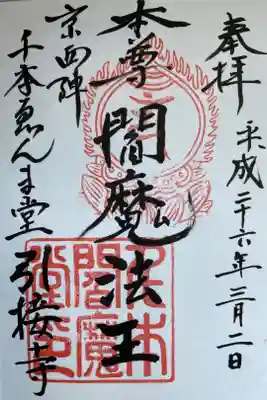 奉拝
平成二十六年三月二日
本尊 閻魔法王
京西陣
千本ゑんま堂 引接寺